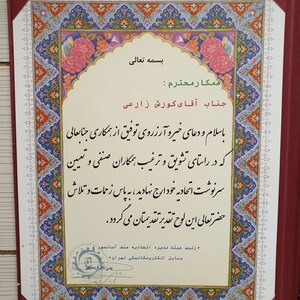 بسمه تعالی
همکار محترم :
جناب آقای کورش زارعی
با سلام و دعای خیر و آرزوی توفیق از همکاری جنابعالی
که در راستای تشویق و ترغیب همکاران صنفی و تعیین
سرنوشت اتحادیه خود ارج نهادید ، به پاس زحمات و تلاش
حضرتعالی این لوح تقدیر تقدیمتان می گردد .
«رئیس هیئت مدیره اتحادیه صنف آسانسور
وسایل الکترومکانیکی تهران»